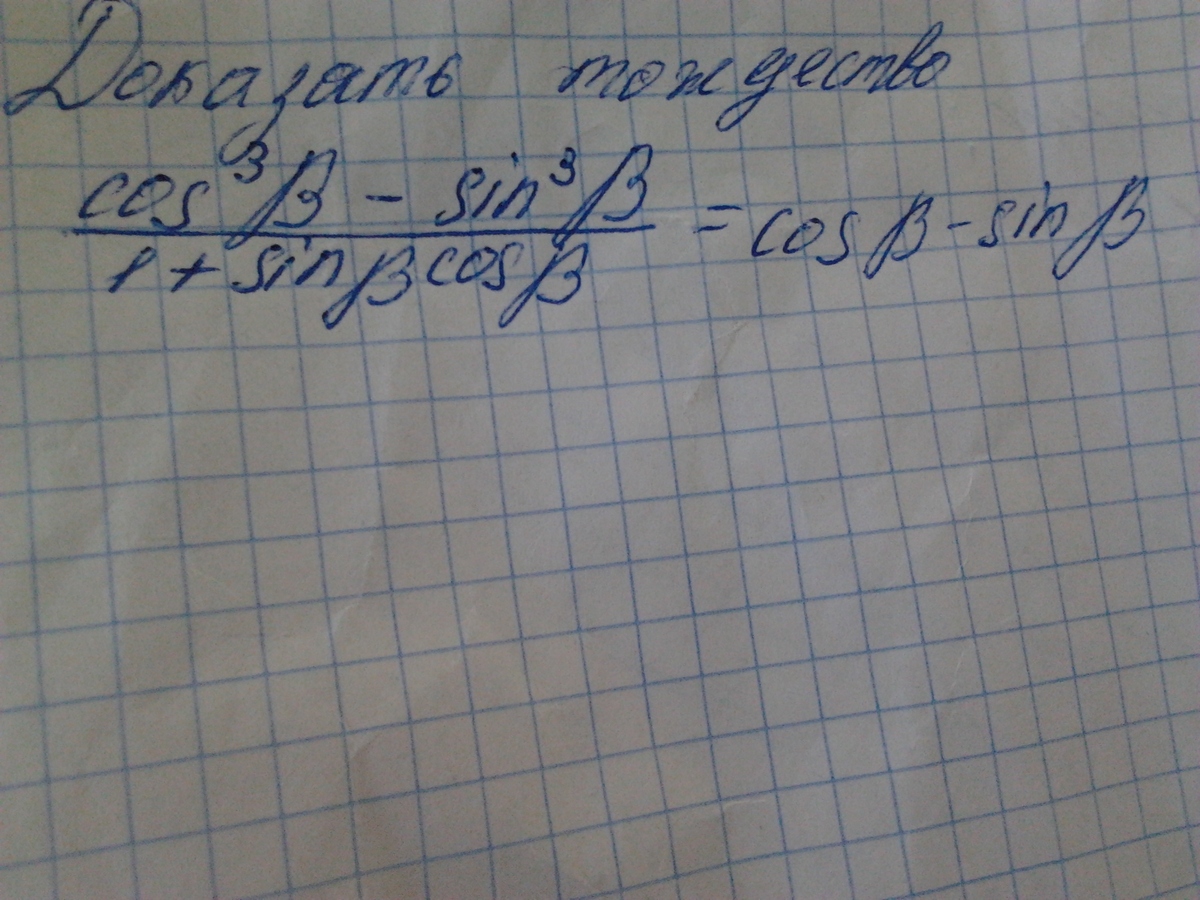 Доказать тождество
cos³β - sin³β
1 + sinβ cosβ = cosβ - sinβ